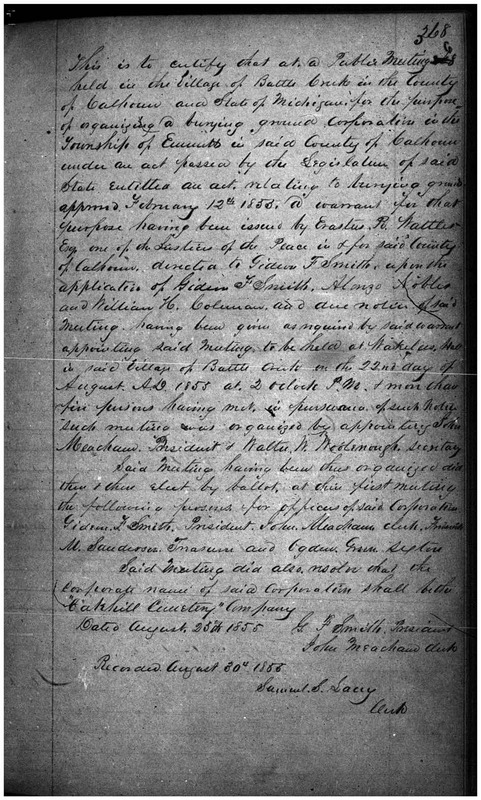 368
This is to certify that at a Public Meeting
held in the Village of Battle Creek in the County
of Calhoun and State of Michigan for the purpose
of organizing a burying ground Corporation in the
Township of Emmett in said County of Calhoun
under an act passed by the Legislature of said
State entitled an act relating to burying grounds
approved February 12th 1855. A warrant for that
purpose having been issued by Erastus R. Wattles
Esq one of the Justices of the Peace in & for said County
of Calhoun directed to Gideon F. Smith, upon the
application of Gideon F. Smith, Alonzo Noble
and William H. Coleman and due notice of said
Meeting having been given as required by said warrant
appointing said Meeting to be held at Wakelees Hall
in said Village of Battle Creek on the 22nd day of
August. A.D. 1855 at 2 oclock P.M. & more than
five persons having met, in pursuance of such Notice
such meeting was organized by appointing John
Meacham President & Walter W. Woolnough Secretary
Said Meeting having been thus organized did
then & there elect by ballot, at this first meeting
the following persons for officers of said Corporation
Gideon F. Smith, President John Meacham Clerk,
M. Sanderson Treasurer and Ogden Green Sexton
Said Meeting did also resolve that the
Corporate name of said Corporation shall be the
"Oakhill Cemetery" Company
Dated August 25th 1855 G F Smith, President
John Meacham Clerk
Recorded August 30th 1855
Samuel S. Lacey
Clerk